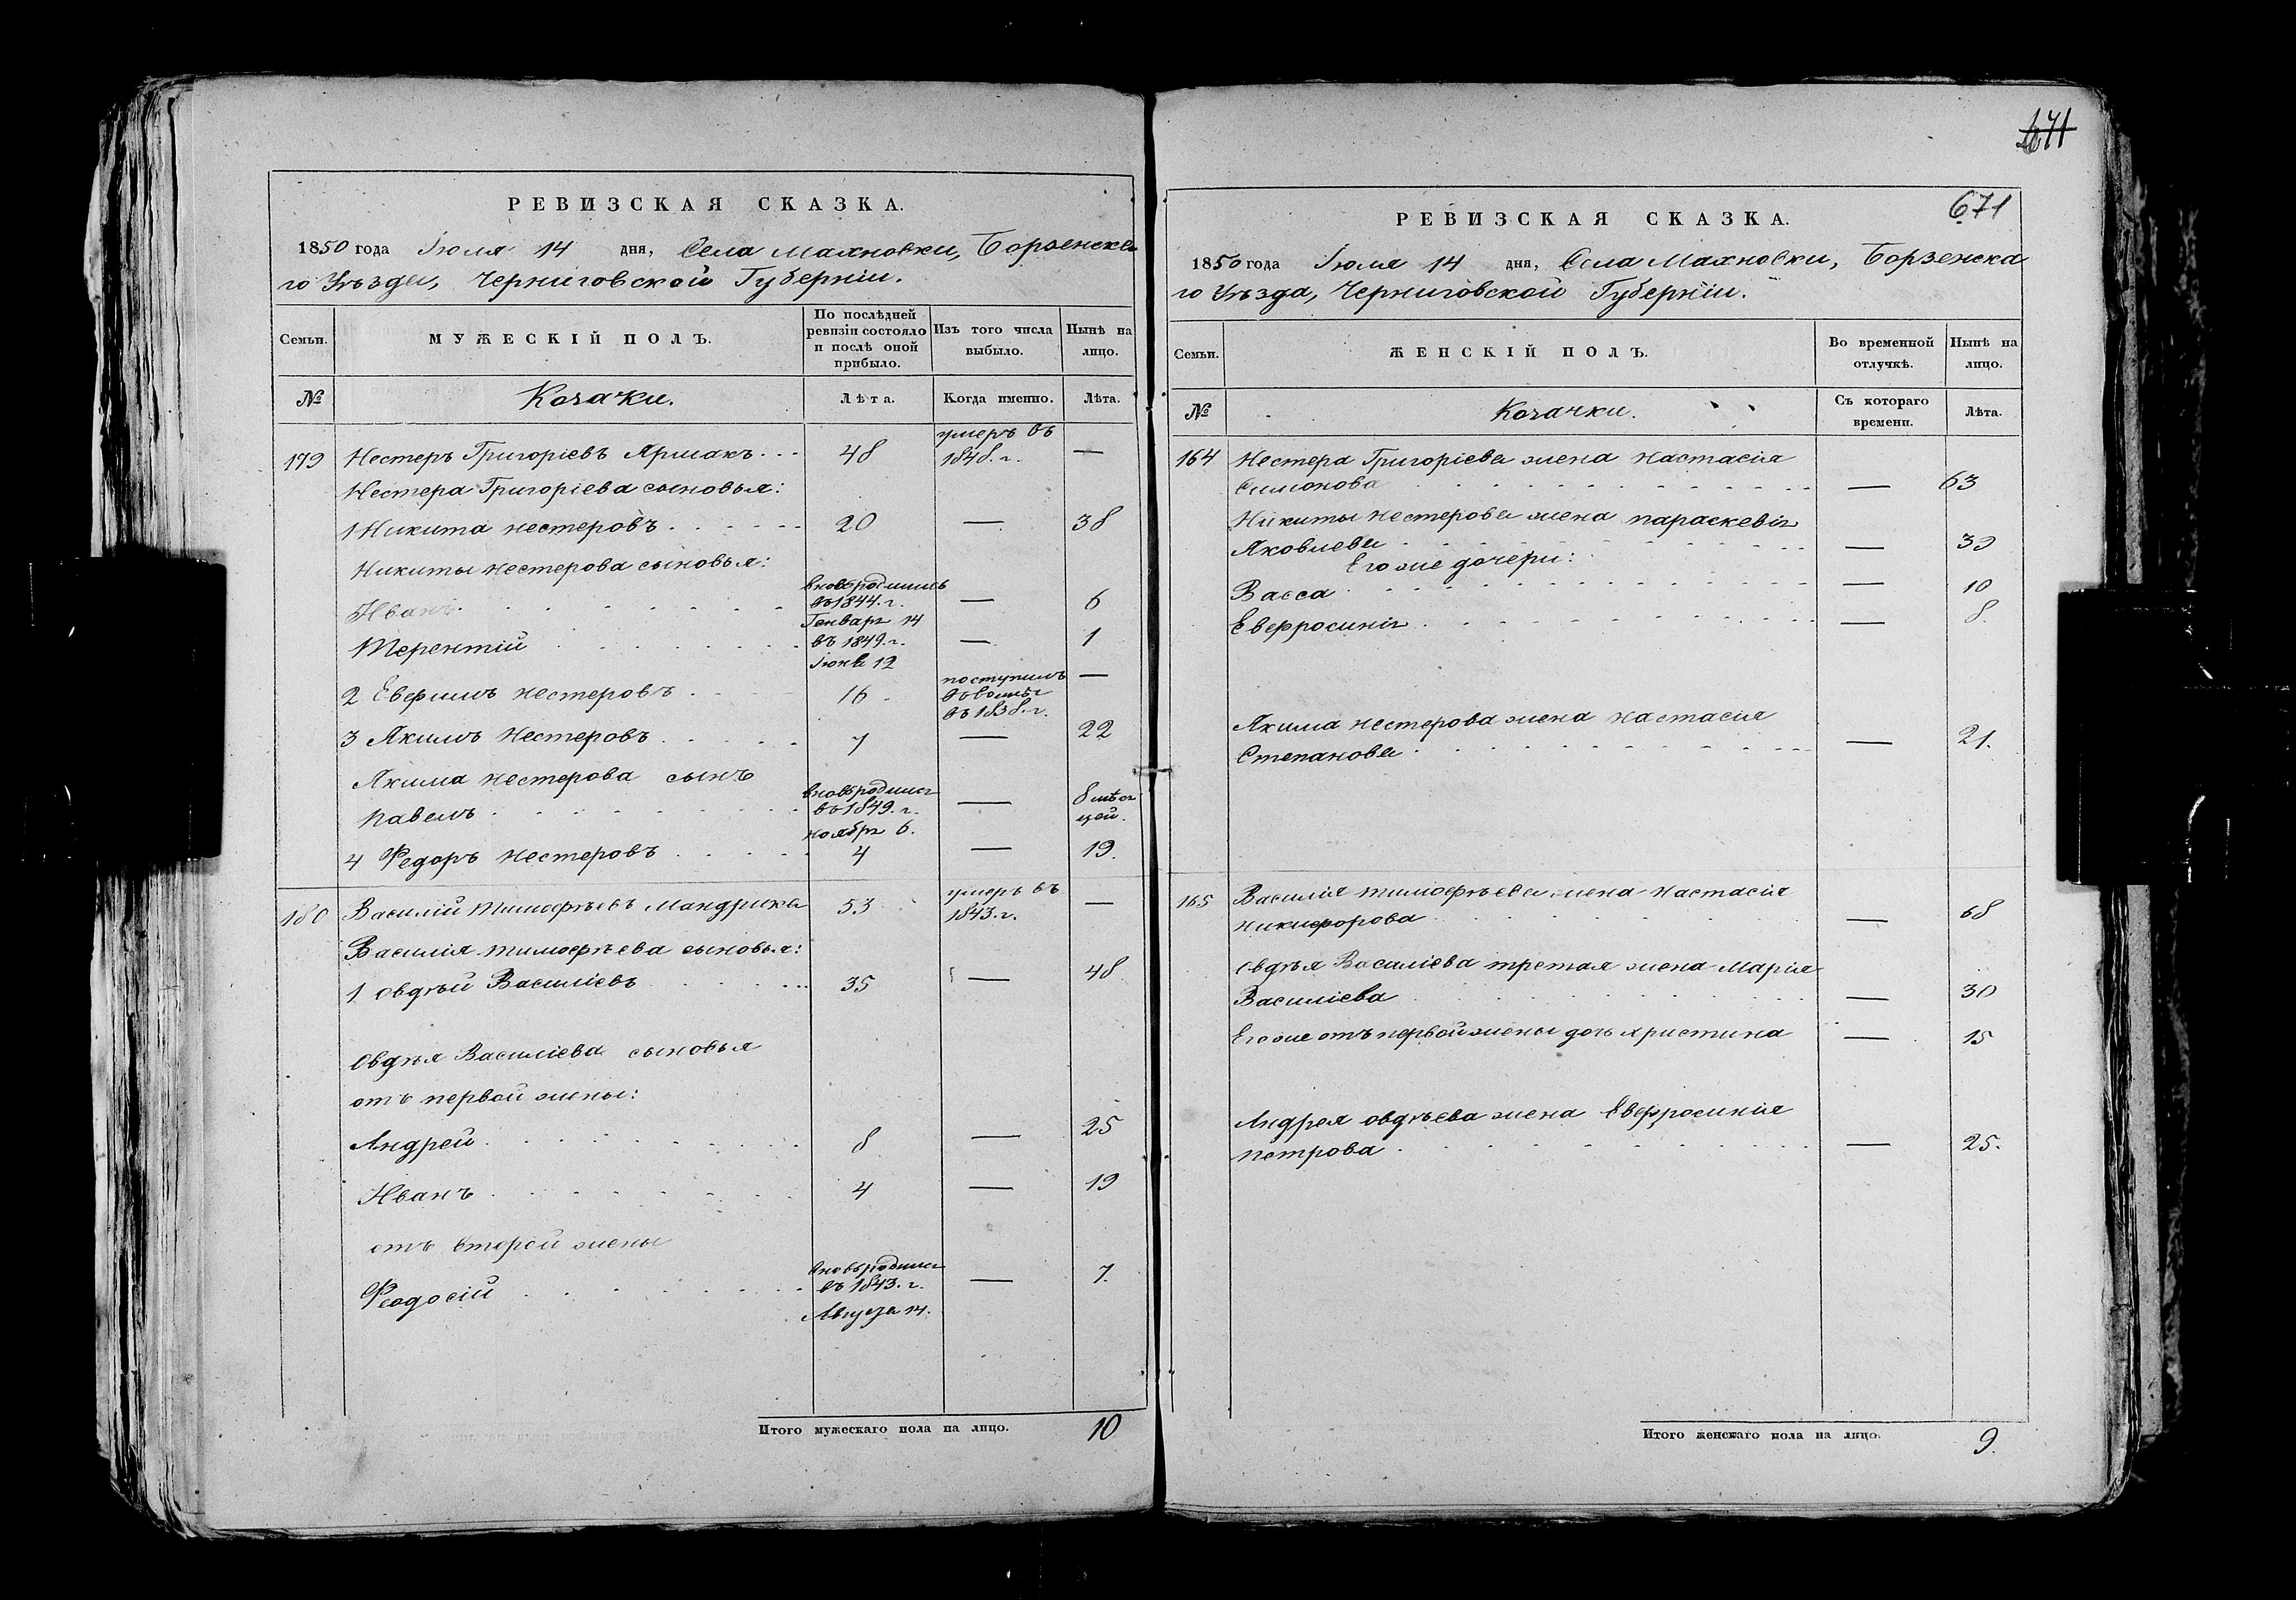 РЕВИЗСКАЯ СКАЗКА.
1850 года Іюля 14 дня, Села Махновки, Борзенска
го Уѣзда, Черниговской Губерніи.
Семьи.
МУЖЕСКІЙ ПОЛЪ.
По послѣдней
ревизіи состояло
и послѣ оной
прибыло.
Изъ того числа
выбыло.
Нынѣ на
лицо.
№
Козачки.
Лѣта.
Когда именно.
Лѣта.
179 Нестеръ Григоріевъ Ярмакъ 48 умеръ въ
1848. г. —
Нестера Григоріева сыновья:
1 Никита Нестеровъ 20 — 38
Никиты Нестерова сыновья:
Иванъ вновьродились
въ 1844. г.
Генваря 14 — 6
Терентій въ 1849. г.
Іюня 12 — 1
2 Евфимъ Нестеровъ 16 поступилъ
въ 1838. г. —
3 Якимъ Нестеровъ 7 — 22
Якима Нестерова сынъ
Павелъ вновьродился
въ 1849. г.
ноября 6. — 8 мѣся
цей.
4 Федоръ Нестеровъ 4 — 19.
180 Василій Тимофѣевъ Мандрика 53 умеръ въ
1843. г. —
Василія Тимофѣева сыновья:
1 Овдѣй Василіевъ 35 — 48
Овдѣя Василіева сыновья
отъ первой жены:
Андрей 8 — 25
Иванъ 4 — 19
отъ второй жены
Феодосій вновьродился
въ 1843. г.
Августа 14. — 7.
Итого мужескаго пола на лицо. 10
671
671
РЕВИЗСКАЯ СКАЗКА.
1850 года Іюля 14 дня, Села Махновки, Борзенска
го Уѣзда, Черниговской Губерніи.
Семьи.
ЖЕНСКІЙ ПОЛЪ.
Во временной
отлучкѣ.
Нынѣ на
лицо.
№
Козачки.
Съ котораго
времени.
Лѣта.
164 Нестера Григоріева жена Настасія
Симонова — 63
Никиты Нестерова жена Параскевія
Яковлева — 39
Его же дочери:
Васса — 10
Евфросинія — 8.
Якима Нестерова жена Настасія
Степанова — 21.
165 Василія Тимофѣева жена Настасія
Никифорова — 68
Овдѣя Василіева третая жена Марія
Василіева — 30
Его же отъ первой жены дочь Христина — 15
Андрея Овдѣева жена Евфросинія
Петрова — 25.
Итого женскаго пола на лицо. 9.